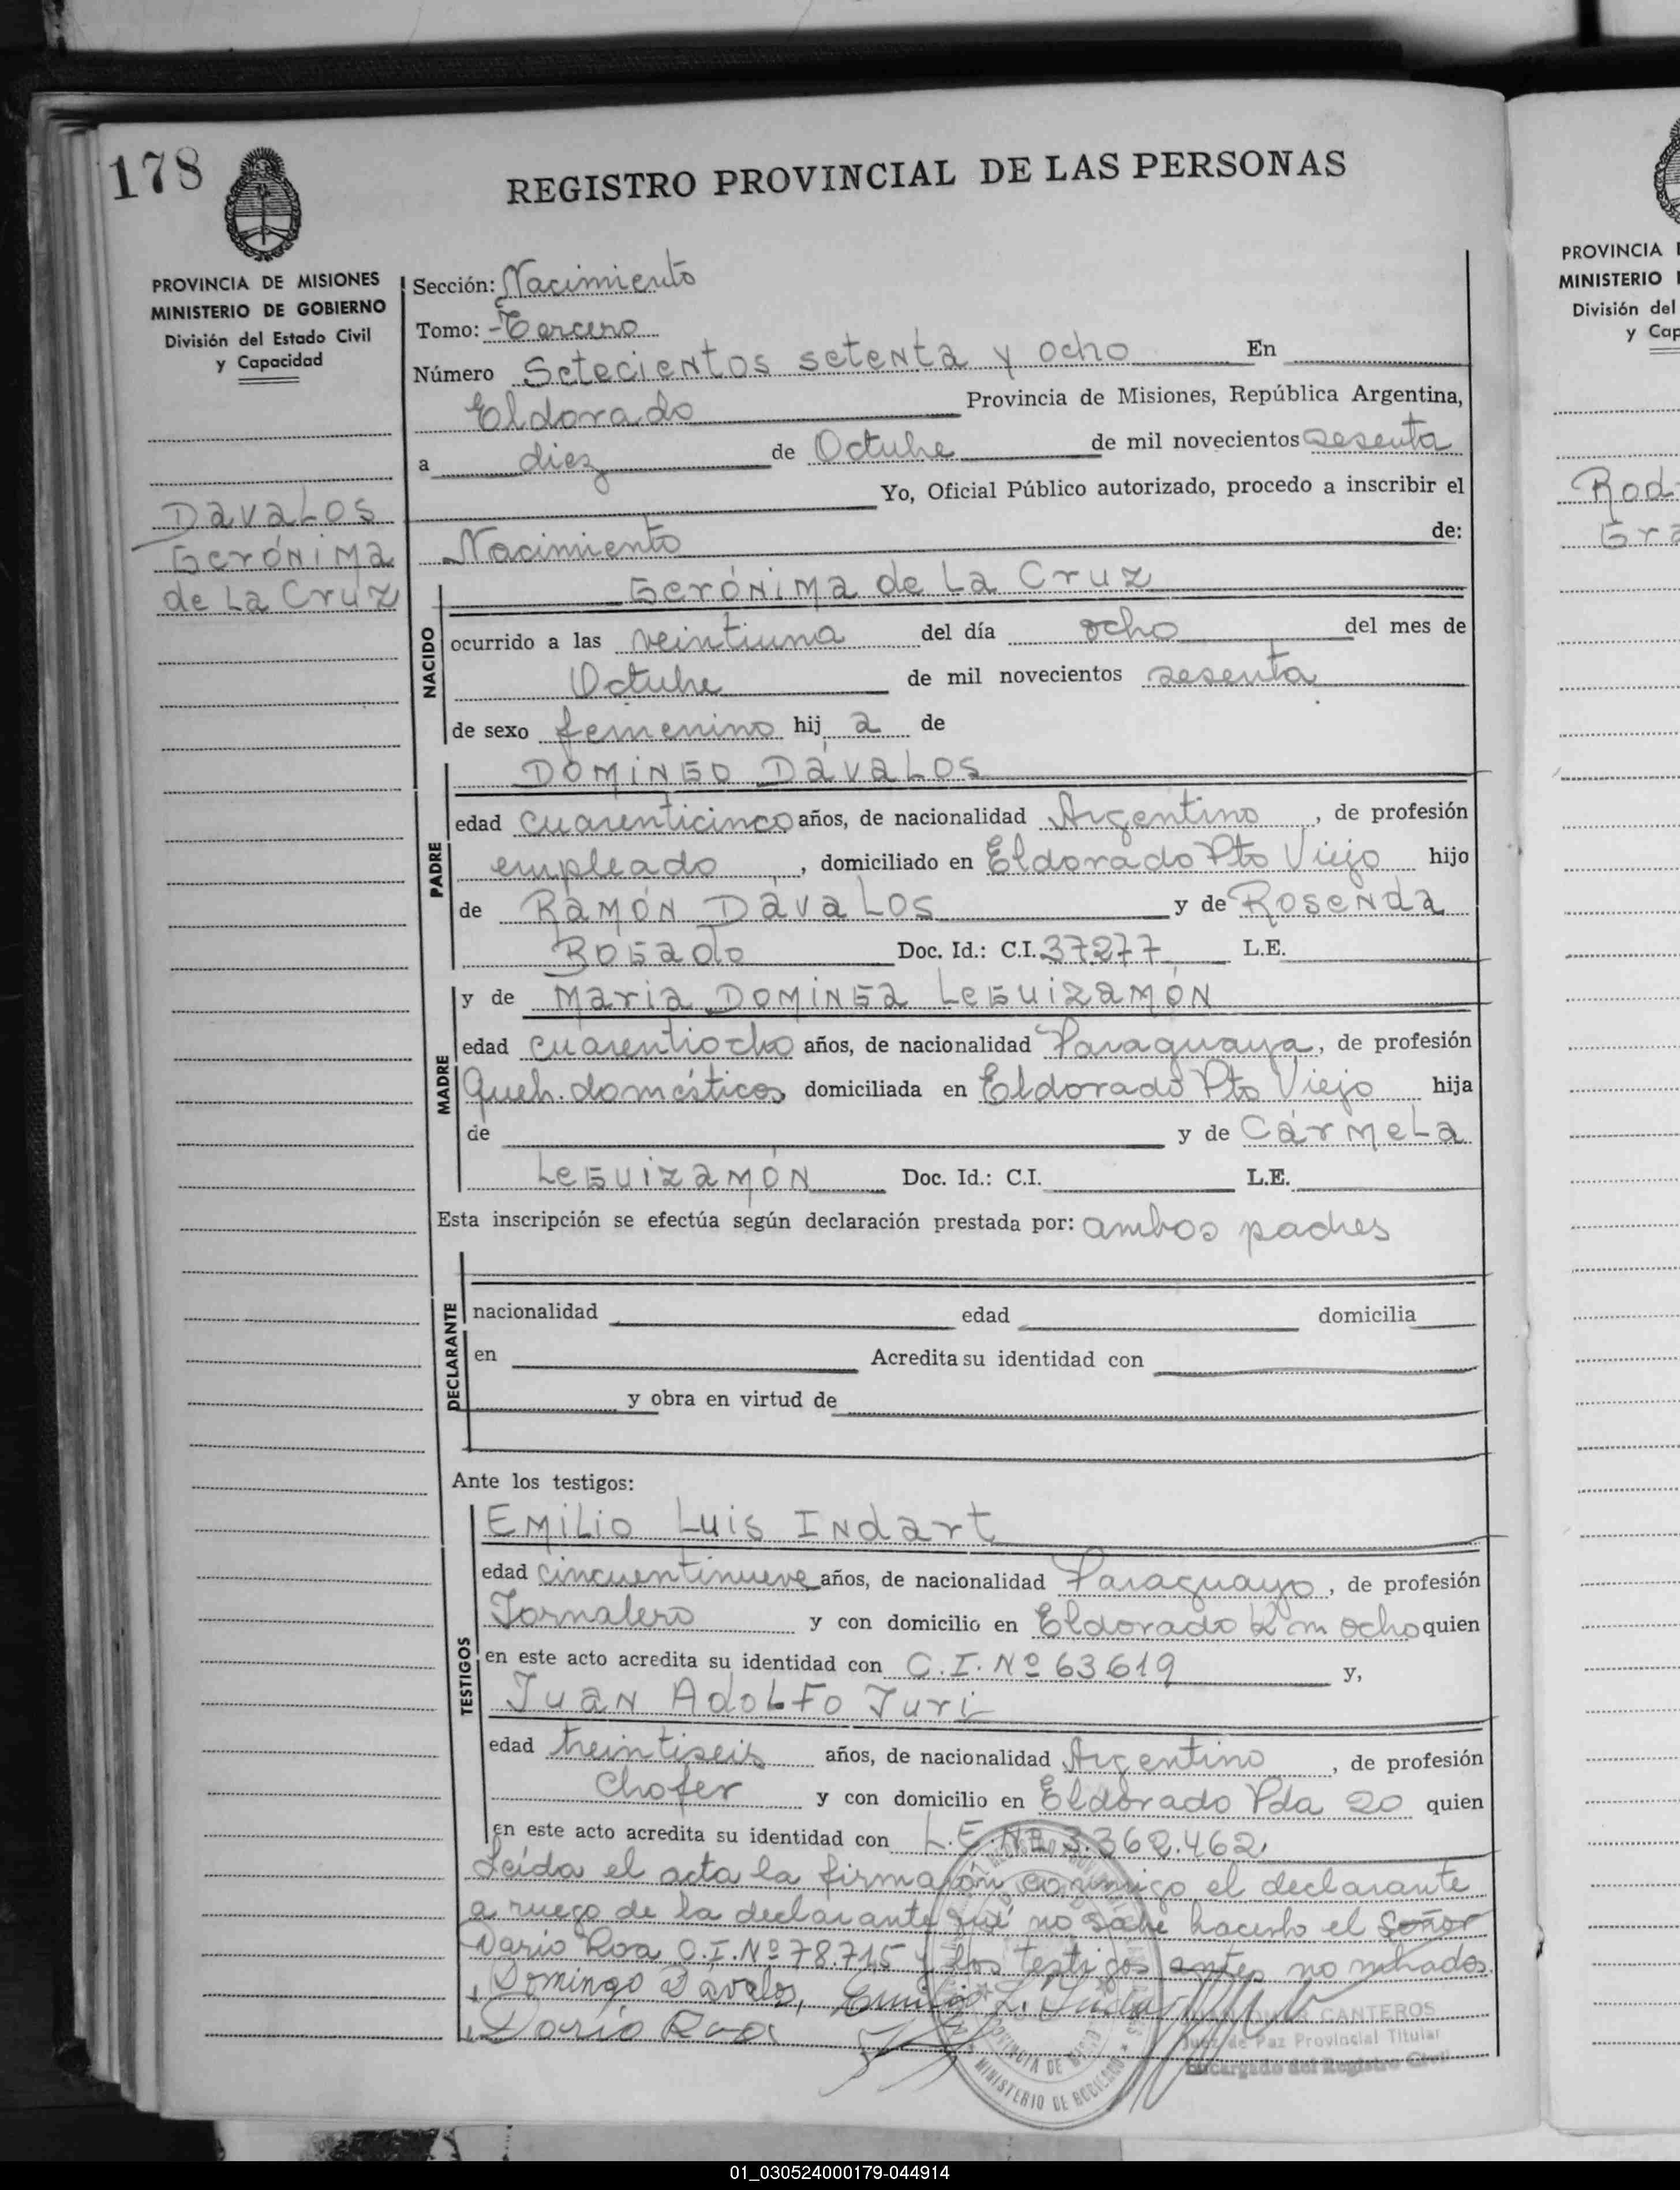 178
REGISTRO PROVINCIAL DE LAS PERSONAS
PROVINCIA DE MISIONES
MINISTERIO DE GOBIERNO
División del Estado Civil
y Capacidad
Davalos
Gerónima
de La Cruz
Sección: Nacimiento
Tomo: - Tercero
Número Setecientos setenta y ocho En
Eldorado Provincia de Misiones, República Argentina,
a diez de Octubre de mil novecientos sesenta
Yo, Oficial Público autorizado, procedo a inscribir el
Nacimiento de:
Gerónima de La Cruz
NACIDO
ocurrido a las veintiuna del día ocho del mes de
Octubre de mil novecientos sesenta
de sexo femenino hij a de
Domingo Dávalos
PADRE
edad cuarenticinco años, de nacionalidad Argentino, de profesión
empleado, domiciliado en Eldorado Pto Viejo hijo
de Ramón Dávalos y de Rosenda
Bogado Doc. Id.: C.I. 37277 L.E.
y de Maria Dominga Leguizamón
MADRE
edad cuarentiocho años, de nacionalidad Paraguaya, de profesión
Queh. domésticos domiciliada en Eldorado Pto Viejo hija
de y de Cármela
Leguizamón Doc. Id.: C.I. L.E.
Esta inscripción se efectúa según declaración prestada por: ambos padres
DECLARANTE
nacionalidad edad domicilia
en Acredita su identidad con
y obra en virtud de
Ante los testigos:
Emilio Luis Indart
TESTIGOS
edad cincuentinueve años, de nacionalidad Paraguayo, de profesión
Jornalero y con domicilio en Eldorado Km ocho quien
en este acto acredita su identidad con C.I. Nº 63.619 y,
Juan Adolfo Juri
edad treintiseis años, de nacionalidad Argentino, de profesión
Chofer y con domicilio en Eldorado Pda 20 quien
en este acto acredita su identidad con L.E. Nº 3.362.462.
Leída el acta la firmarón conmigo el declarante
a ruego de la declarante qué no sabe hacerlo el Señor
Dario Roa C.I. Nº 78.715 y los testigos antes nombrados.
Domingo Dávalos, Emilio L. Indart
Dario Roa
CANTEROS
Juez de Paz Provincial Titular
Encargado del Registro Civil
PROVINCIA DE
MINISTERIO DE
PROVINCIA
MINISTERIO
División del
y Cap
Rod
Gra
01_030524000179-044914